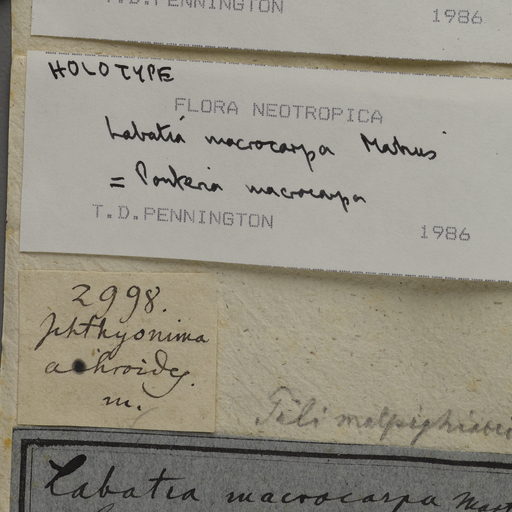 T.D.PENNINGTON 1986
HOLOTYPE
FLORA NEOTROPICA
Labatia macrocarpa
= Pouteria macrocarpa
T.D.PENNINGTON 1986
2998.
phthyonima
m.
malpighiacei
Labatia macrocarpa Mart